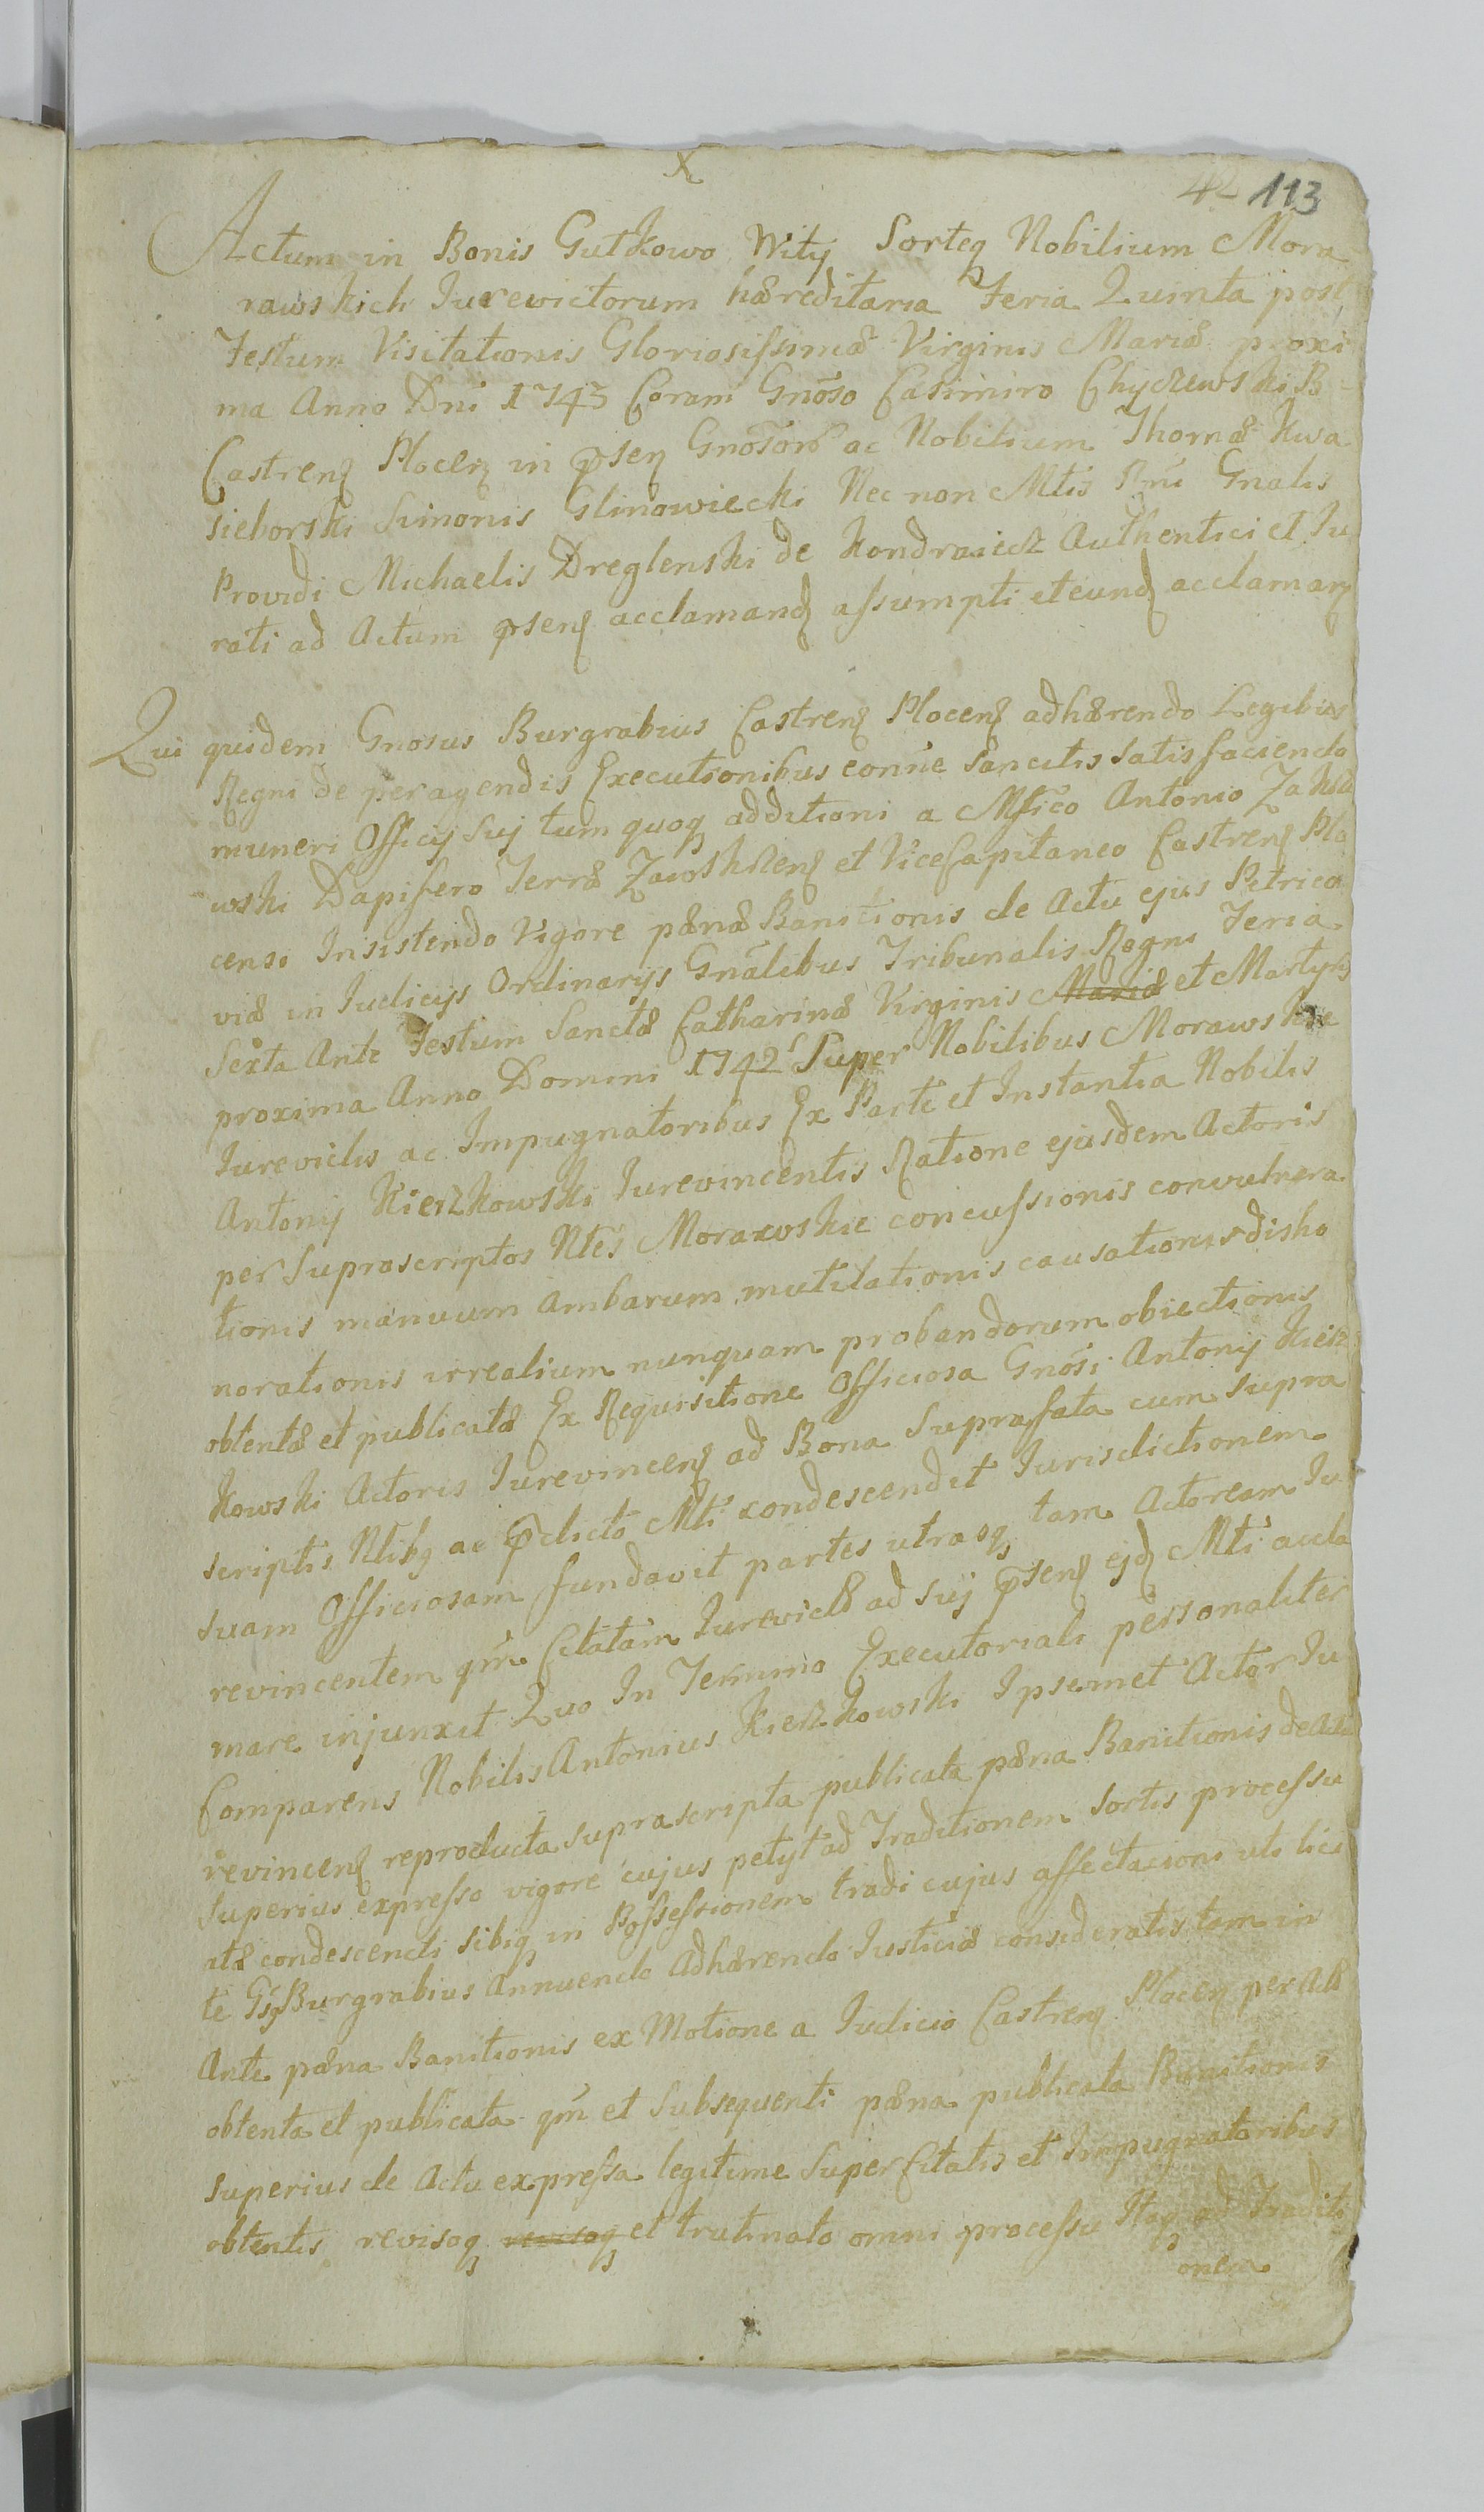 X
42 113
Actum in Bonis Gutkowo Wity Sorteq Nobilium Mora
rawskich Jurevictorum hæreditaria Feria Quinta post
Festum Visitationis Gloriosissimæ Virginis Mariæ proxi
ma Anno Dni 1743 Coram Gnoso Casimiro Chyczewski B=
Castren Plocen in psen Gnosorũ ac Nobilium Thomæ Kwa
sieborski Simonis Glinowiecki Nec non Mtis Rni Gnalis
Providi Michaelis Dreglenski de Kondraiecz Authentici et Ju
rati ad Actum psens acclamand assumpti et eund acclaman
Qui quidem Gnosus Burgrabius Castren Plocen adhærendo Legibus
Regni de peragendis Executionibus eorme Sancitis satisfaciendo
muneri Officij suj tum quoq additioni a Mfico Antonio Zakrz
wski Dapifero Terræ Zawskrzen et ViceCapitaneo Castren Plo
censi Insistendo Vigore pænæ Banitionis de Actu ejus Petrico
viæ in Judicijs Ordinarijs Gnalibus Tribunalis Regni Feria
Sexta Ante Festum Sanctæ Catharinæ Virginis Mariæ et Martyris
proxima Anno Domini 1742 Super Nobilibus Morawskie
Jurevictis ac Impugnatoribus Ex Parte et Instantia Nobilis
Antonij Kierzkowski Jurevincentis Ratione ejusdem Actoris
per Suprascriptos Ntes Morawskie concussionis convulnera
tionis manuum ambarum mutilationis causationis disho
norationis irrealium nunquam probandorum obiectionis
obtentæ et publicatæ Ex Requisitione Officiosa Gnosi Antonij Kierz
kowski Actoris Jurevincen ad Bona Suprafata cum supra
scriptis Ntibq ac pdicto Mti condescendit Jurisdictionem
suam Officiosam fundavit partes utrasq tam Actoream Ju
revincentem qm Citatam Jurevictæ ad suj psen ejd Mti accla
mare injunxit Quo In Termino Executoriali personaliter
Comparens Nobilis Antonius Kierzkowski Ipsemet Actor Ju
revincens reproducta suprascripta publicata pæna Banitionis de Actu
Superius expresso vigore cujus petijt ad Traditionem Sortis processu
atæ condescendi sibiq in Possessionem tradi cujus affectacioni uti lici
te Gs Burgrabius Annuendo Adhærendo Justiciæ consideratis tam in
Ante pæna Banitionis ex Motione a Judicio Castren Plocen per Act
obtenta et publicata qm et Subsequenti pæna publicata Banitionis
superius de Actu expressa legitime Super Citatis et Impugnatoribus
obtentis revisoq revisoq et trutinato omni processu Itaq ad Traditi
onem